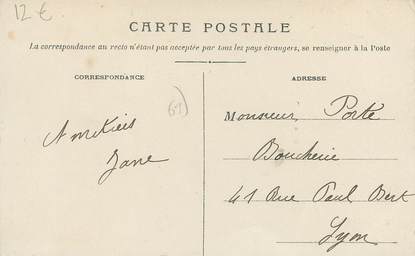 12 €
CARTE POSTALE
La correspondance au recto n'étant pas acceptée par tous les pays étrangers, se renseigner à la Poste
CORRESPONDANCE
ADRESSE
69
Monsieur Porte
Amitiés
Boucherie
Jane
41 Rue Paul Bert
Lyon